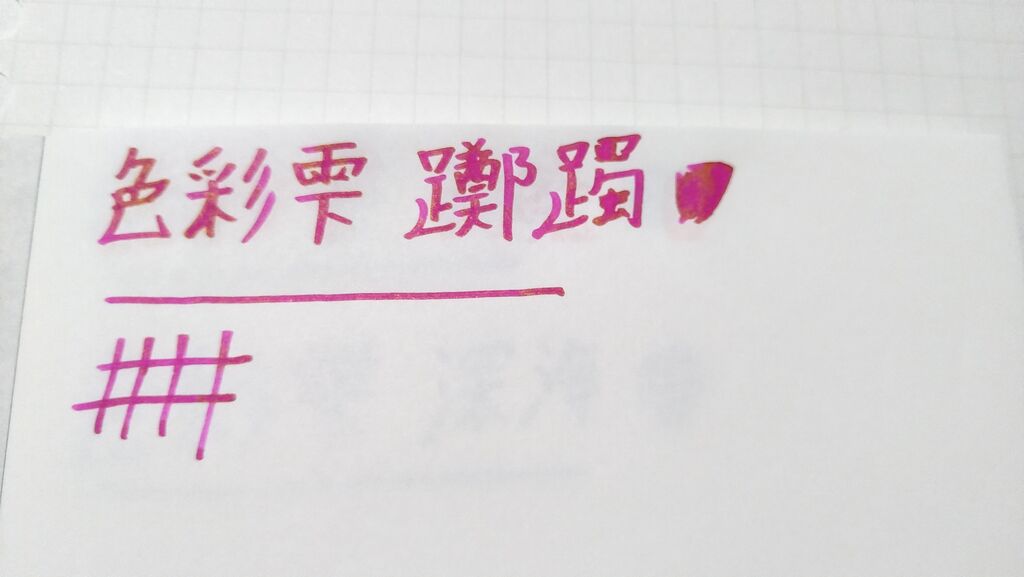 色彩雫 躑躅